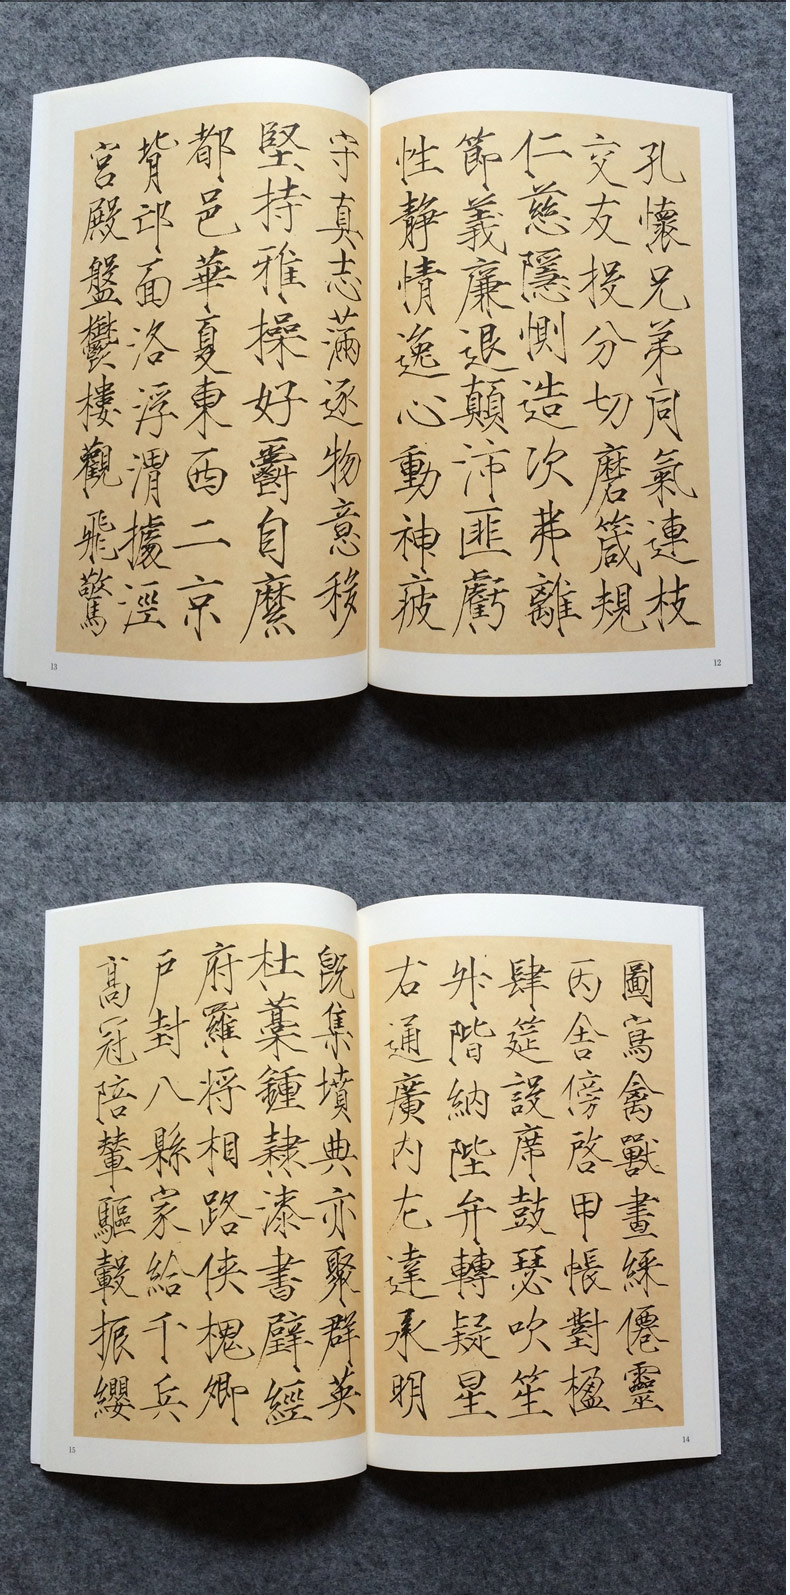 孔懷兄弟同氣連枝
交友投分切磨箴規
仁慈隱惻造次弗離
節義廉退顛沛匪虧
性靜情逸心動神疲
12
守真志滿逐物意移
堅持雅操好爵自縻
都邑華夏東西二京
背邙面洛浮渭據涇
宮殿盤鬱樓觀飛驚
13
圖寫禽獸畫綵僊靈
丙舍傍啓甲帳對楹
肆筵設席鼓瑟吹笙
升階納陛弁轉疑星
右通廣内左達承明
14
既集墳典亦聚群英
杜藁鍾隸漆書壁經
府羅將相路俠槐卿
戶封八縣家給千兵
高冠陪輦驅轂振纓
15